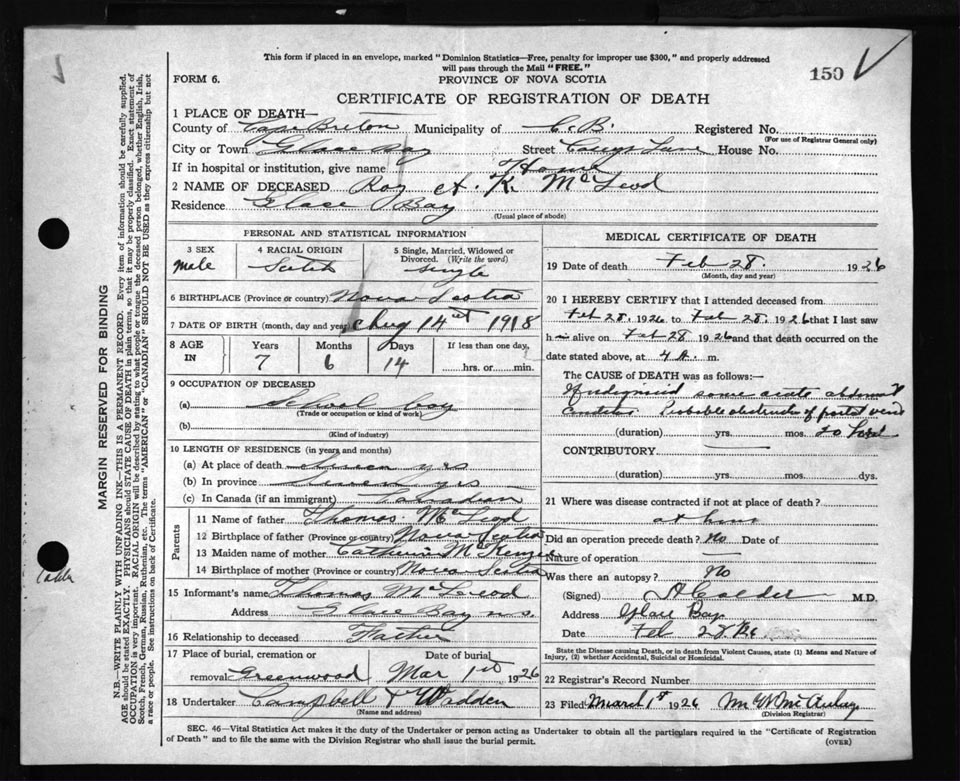 This form if placed in an envelope, marked "Dominion Statistics—Free, penalty for improper use $300," and properly addressed
will pass through the Mail "FREE."
FORM 6.
PROVINCE OF NOVA SCOTIA
150
CERTIFICATE OF REGISTRATION OF DEATH
1 PLACE OF DEATH—
County of Cape Breton Municipality of C.B. Registered No.
(For use of Registrar General only)
City or Town Glace Bay Street Lane House No.
If in hospital or institution, give name Home
2 NAME OF DECEASED Roy A. K. McLeod
Residence Glace Bay
(Usual place of abode)
PERSONAL AND STATISTICAL INFORMATION
3 SEX
Male
4 RACIAL ORIGIN
Scotch
5 Single, Married, Widowed or
Divorced. (Write the word)
single
6 BIRTHPLACE (Province or country) Nova Scotia
7 DATE OF BIRTH (month, day and year) Aug 14th 1918
8 AGE IN
Years
Months
Days
If less than one day,
7
6
14
hrs. or min.
9 OCCUPATION OF DECEASED
(a) School boy
(Trade or occupation or kind of work)
(b)
(Kind of industry)
10 LENGTH OF RESIDENCE (in years and months)
(a) At place of death Seven yrs
(b) In province Seven yrs
(c) In Canada (if an immigrant) Canadian
Parents
11 Name of father Thomas McLeod
12 Birthplace of father (Province or country) Nova Scotia
13 Maiden name of mother Catherine McKenzie
14 Birthplace of mother (Province or country) Nova Scotia
15 Informant's name Thomas McLeod
Address Glace Bay N.S.
16 Relationship to deceased Father
17 Place of burial, cremation or
removal Greenwood
Date of burial
Mar 1st 1926
18 Undertaker Campbell & Wadden
(Name and address)
MEDICAL CERTIFICATE OF DEATH
19 Date of death Feb 28. 1926
(Month, day and year)
20 I HEREBY CERTIFY that I attended deceased from
Feb 28. 1926 to Feb 28. 1926 that I last saw
him alive on Feb 28 1926 and that death occurred on the
date stated above, at 4 A. m.
The CAUSE of DEATH was as follows:—
some acute abdominal
Probable obstruction of portal vein
(duration) yrs. mos. 20
CONTRIBUTORY
(duration) yrs. mos. dys.
21 Where was disease contracted if not at place of death?
at home
Did an operation precede death? No Date of
Nature of operation —
Was there an autopsy? No
(Signed) A Calder M.D.
Address Glace Bay
Date Feb 28
State the Disease causing Death, or in death from Violent Causes, state (1) Means and Nature of
Injury, (2) whether Accidental, Suicidal or Homicidal.
22 Registrar's Record Number
23 Filed March 1st 1926 McAulay
(Division Registrar)
SEC. 46—Vital Statistics Act makes it the duty of the Undertaker or person acting as Undertaker to obtain all the particulars required in the "Certificate of Registration
of Death" and to file the same with the Division Registrar who shall issue the burial permit.
(OVER)
MARGIN RESERVED FOR BINDING
N.B.—WRITE PLAINLY WITH UNFADING INK—THIS IS A PERMANENT RECORD. Every item of information should be carefully supplied.
AGE should be stated EXACTLY. PHYSICIANS should STATE CAUSE OF DEATH in plain terms, so that it may be properly classified. Exact statement of
OCCUPATION is very important. RACIAL ORIGIN will be described by stating to what people or tongue the deceased person belonged, whether English, Irish,
Scotch, French, German, Russian, Ruthenian, etc. The terms "AMERICAN" or "CANADIAN" SHOULD NOT BE USED as they express citizenship but not
a race or people. See instructions on back of Certificate.